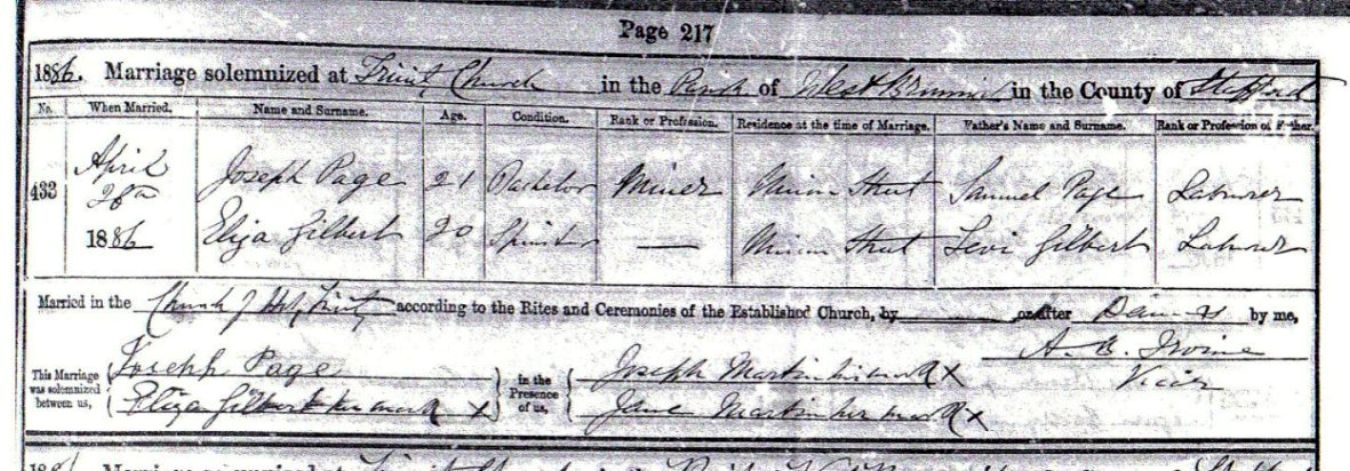 Page 217
1886. Marriage solemnized at Trinity Church in the Parish of West Bromwich in the County of Stafford
No. When Married. Name and Surname. Age. Condition. Rank or Profession. Residence at the time of Marriage. Father's Name and Surname. Rank or Profession of Father.
433 April Joseph Page 21 Bachelor Miner Street Samuel Page Labourer
1886 Eliza Gilbert 20 Spinster — Street Levi Gilbert Labourer
Married in the Church of Holy Trinity according to the Rites and Ceremonies of the Established Church, by or after Banns by me,
A. B. Irvine
Vicar
This Marriage was solemnized between us, Joseph Page in the Presence of us, Joseph Martin his mark X
Eliza Gilbert her mark X Jane Martin her mark X
Marriage solemnized at